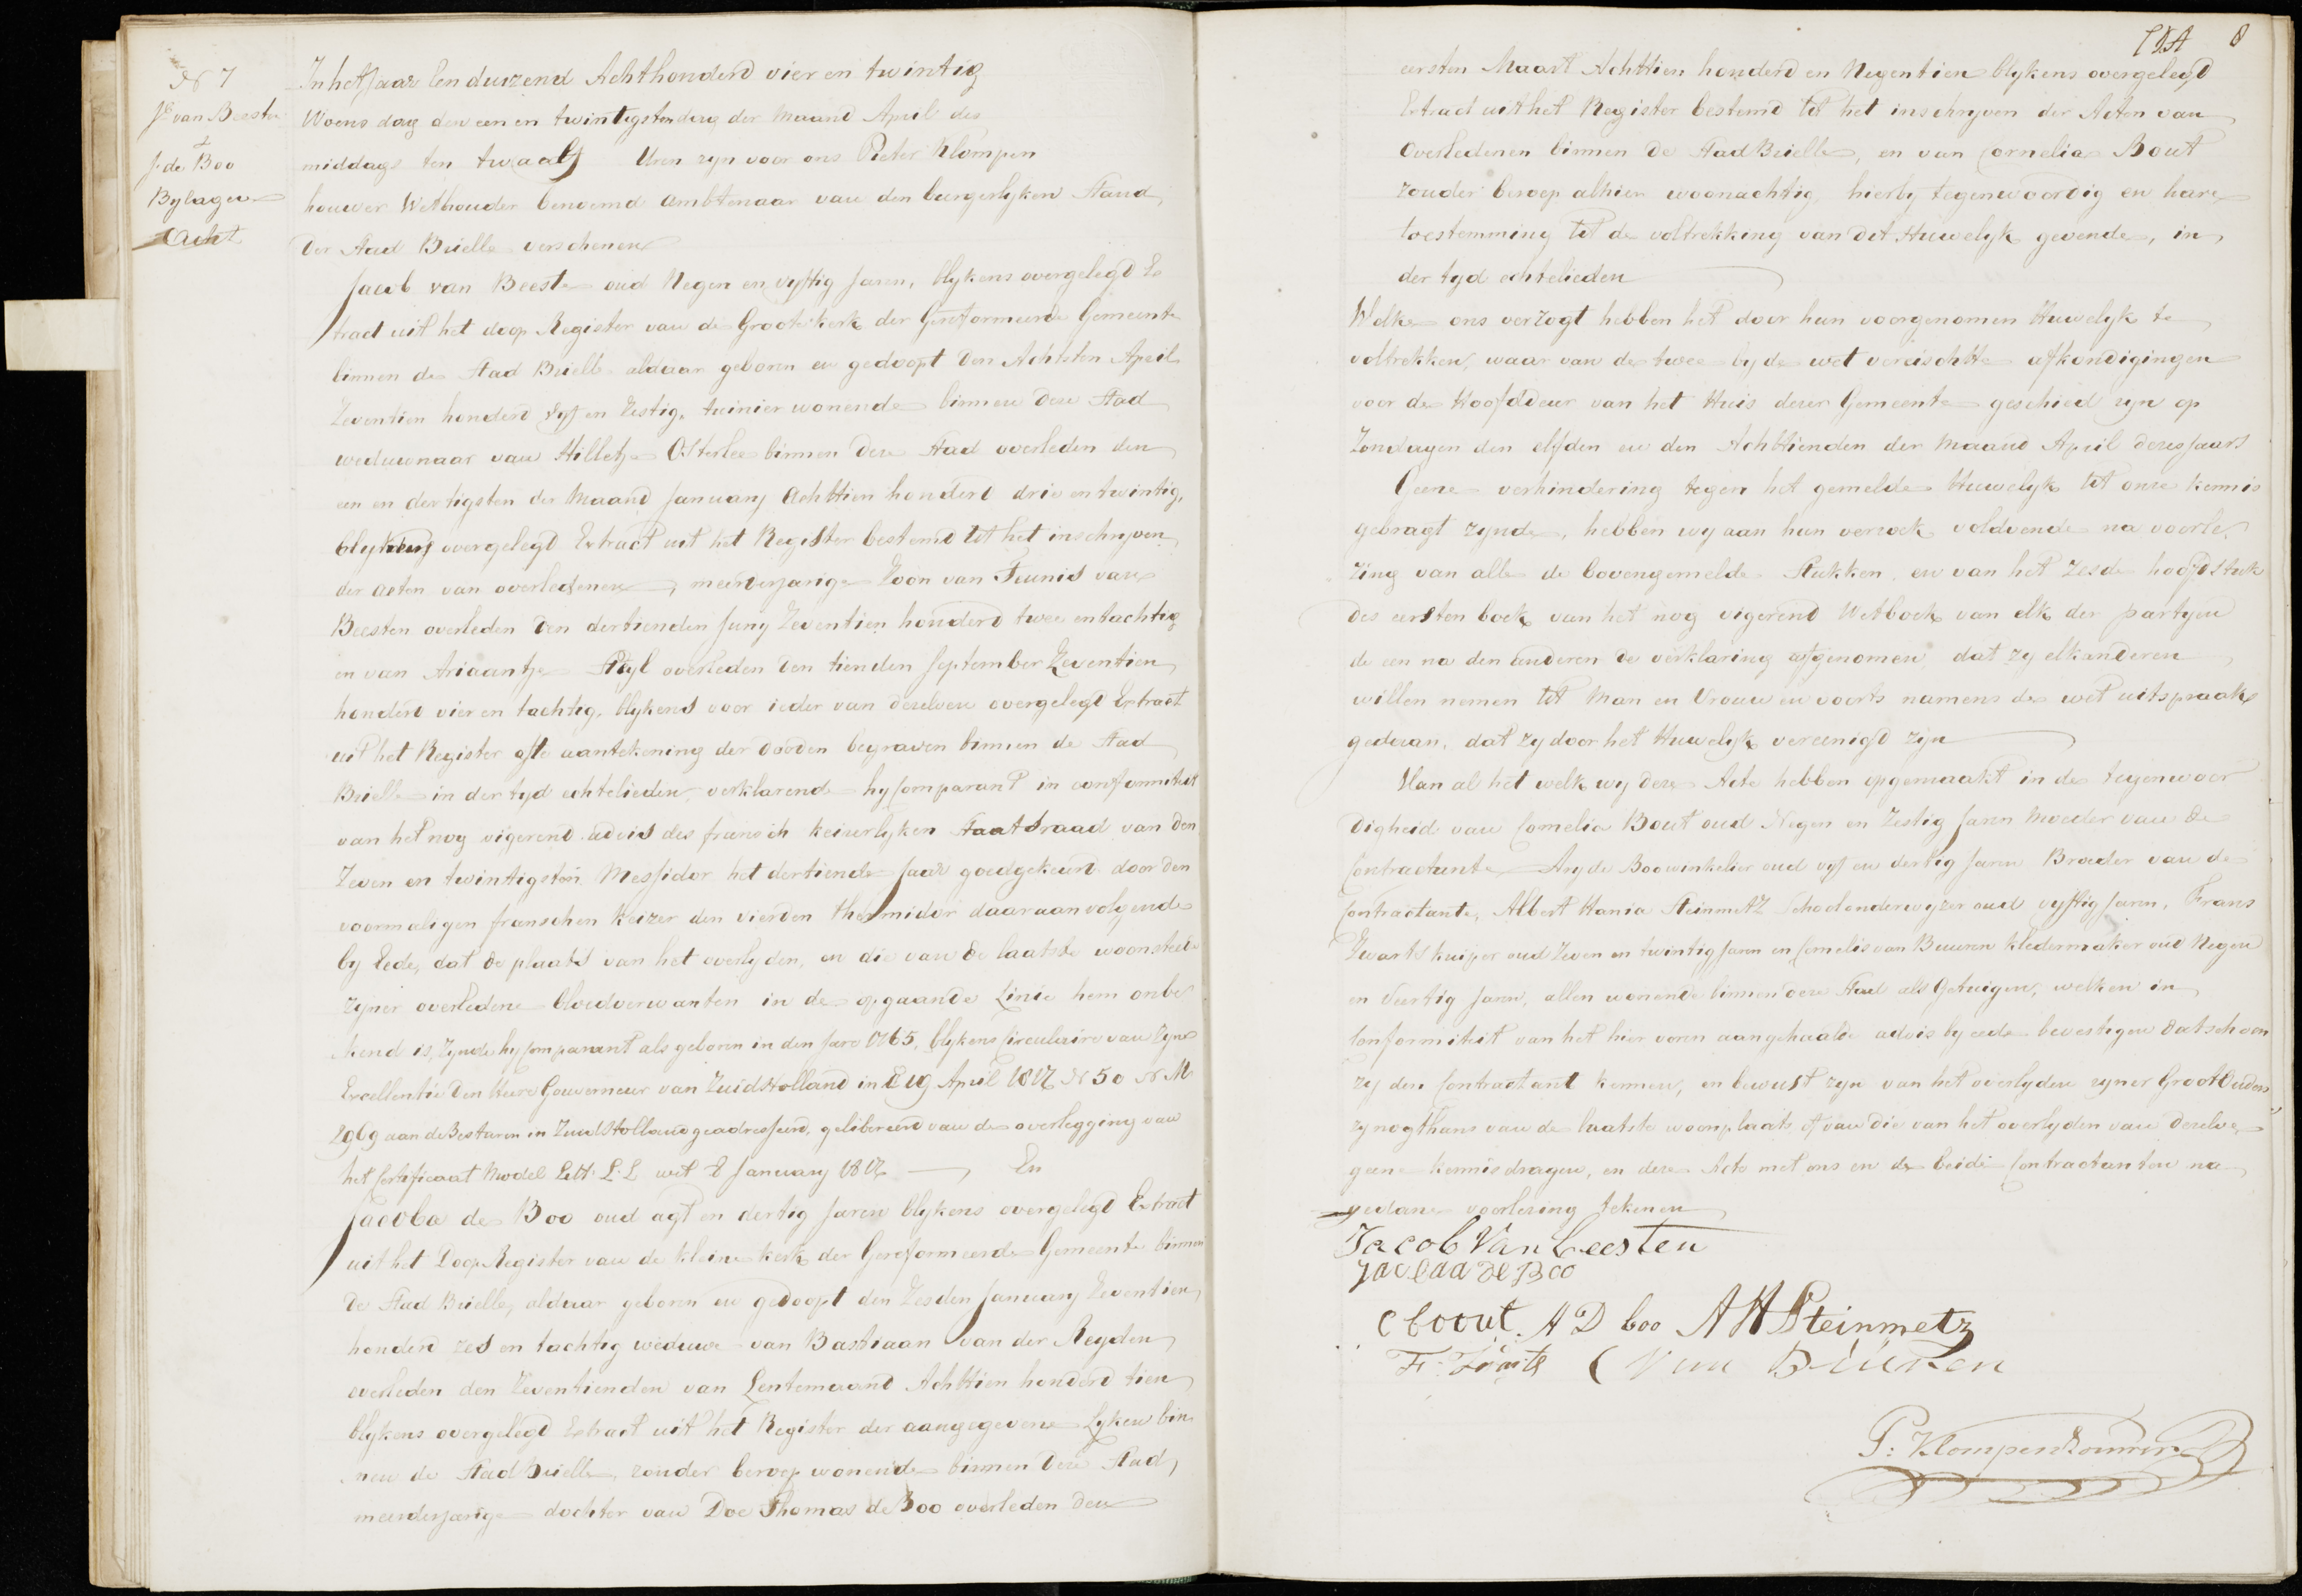 N 7
Jb van Beesten
&
J. de Boo
Bylagen
Acht
In het Jaar Een duizend Achthonderd vier en twintig
Woensdag den een en twintigsten dag der Maand April des
middags ten twaalf Uren zyn voor ons Pieter Klompen
houwer Wethouder benoemd ambtenaar van den burgerlyken Stand,
der Stad Brielle verschenen
Jacob van Beesten oud Negen en vyftig Jaren, blykens overgelegd Ex
tract uit het doop Register van de Groote kerk der Gereformeerde Gemeente
binnen de Stad Brielle aldaar geboren en gedoopt den Achtsten April
Zeventien honderd vyf en Zestig, tuinier wonende binnen deze Stad
weduwnaar van Hilletje Osterlee binnen deze Stad overleden den
een en dertigsten der Maand January Achttien honderd drie en twintig,
blykens overgelegd Extract uit het Register bestemd tot het inschryven
der acten van overledenen, meerderjarige Zoon van Teunis van
Beesten overleden den dertienden Juny Zeventien honderd twee en tachtig
en van Ariaantje Styl overleden den tienden September Zeventien
honderd vier en tachtig, blykens voor ieder van dezelven overgelegd Extract
uit het Register ofte aantekening der dooden begraven binnen de Stad
Brielle in der tyd echtelieden, verklarende hy Comparant in conformiteit
van het nog vigerend advis des fransch keizerlyken Staatsraad van den
Zeven en twintigsten Messidor het dertiende Jaar goedgekeurd door den
voormaligen franschen Keizer den vierden thermidor daaraanvolgende
by Eede, dat de plaats van het overlyden, en die van de laatste woonstede
zyner overledene bloedverwanten in de opgaande Linie hem onbe
kend is, Zynde hy Comparant als geboren in den Jare 1765, blykens Circulaire van Zyne
Excellentie den Heere Gouverneur van Zuid Holland in 19 April 1817 N 50 N M
2969 aan de Besturen in Zuid Holland geadresseerd, gelibereerd van de overlegging van
het Certificaat Model Lett. L. L wet 8 January 1817 — En
Jacoba de Boo oud agt en dertig Jaren blykens overgelegd Extract
uit het Doop Register van de kleine kerk der Gereformeerde Gemeente binnen
de Stad Brielle, aldaar geboren en gedoopt den Zesden January Zeventien
honderd zes en tachtig weduwe van Bastiaan van der Reyden
overleden den Zeventienden van Lentemaand Achttien honderd tien
blykens overgelegd Extract uit het Register der aangegevene Lyken bin
nen de Stad Brielle, zonder beroep wonende binnen deze Stad,
meerderjarige dochter van Doe Thomas de Boo overleden den
8
eersten Maart Achttien honderd en Negentien blykens overgelegd
Extract uit het Register bestemd tot het inschryven der Acten van
Overledenen binnen de Stad Brielle, en van Cornelia Bout
zonder beroep alhier woonachtig, hierby tegenwoordig en hare
toestemming tot de voltrekking van dit Huwelyk gevende, in
der tyd echtelieden
Welke ons verzogt hebben het door hun voorgenomen Huwelyk te
voltrekken, waar van de twee by de wet vereischte afkondigingen
voor de Hoofddeur van het Huis dezer Gemeente geschied zyn op
Zondagen den elfden en den Achttienden der Maand April dezes Jaars
Geene verhindering tegen het gemelde Huwelyk tot onze kennis
gebragt zynde, hebben wy aan hun verzoek voldoende na voorle
zing van alle de bovengemelde Stukken, en van het Zesde hoofdstuk
des eersten boek van het nog vigerend Wetboek van elk der partyen
de een na den anderen de verklaring afgenomen, dat zy elkanderen
willen nemen tot Man en Vrouw en voorts namens de wet uitspraak
gedaan, dat zy door het Huwelyk vereenigd zyn
Van al het welk wy deze Acte hebben opgemaakt in de tegenwoor
digheid van Cornelia Bout oud Negen en Zestig Jaren Moeder van de
Contractante, Ary de Boo winkelier oud vyf en dertig Jaren Broeder van de
Contractante, Albert Hania Steinmetz Schoolonderwyzer oud vyftig Jaren, Frans
Zwarts kuiper oud Zeven en twintig Jaren en Cornelis van Buuren kledermaker oud Negen
en Veertig Jaren, allen wonende binnen deze Stad als Getuigen, welken in
Conformiteit van het hier voren aangehaalde advis by eede bevestigen dat schoon
zy den Contractant kennen, en bewust zyn van het overlyden zyner Groot Ouders
zy nogthans van de laatste woonplaats of van die van het overlyden van dezelve
geene kennis dragen, en deze Acte met ons en de beide Contractanten na
gedane voorlezing tekenen
Jacob Van beesten
Jacoba de Boo
C boout. A D boo A H Steinmetz
F. Zwarts C Van Buuren
P: Klompenhouwer